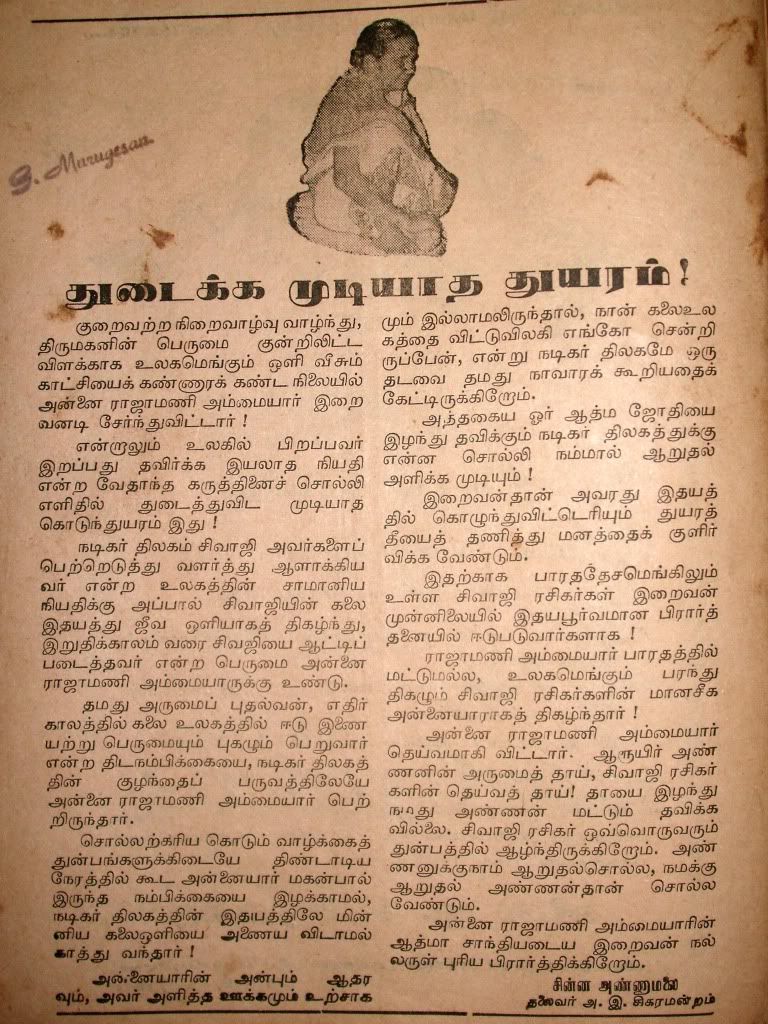 S. Murugesan
துடைக்க முடியாத துயரம்!
குறைவற்ற நிறைவாழ்வு வாழ்ந்து,
திருமகனின் பெருமை குன்றிலிட்ட
விளக்காக உலகமெங்கும் ஒளி வீசும்
காட்சியைக் கண்ணாரக் கண்ட நிலையில்
அன்னை ராஜாமணி அம்மையார் இறை
வனடி சேர்ந்துவிட்டார் !
என்றாலும் உலகில் பிறப்பவர்
இறப்பது தவிர்க்க இயலாத நியதி
என்ற வேதாந்த கருத்தினைச் சொல்லி
எளிதில் துடைத்துவிட முடியாத
கொடுந்துயரம் இது !
நடிகர் திலகம் சிவாஜி அவர்களைப்
பெற்றெடுத்து வளர்த்து ஆளாக்கிய
வர் என்ற உலகத்தின் சாமானிய
நியதிக்கு அப்பால் சிவாஜியின் கலை
இதயத்து ஜீவ ஒளியாகத் திகழ்ந்து,
இறுதிக்காலம் வரை சிவஜியை ஆட்டிப்
படைத்தவர் என்ற பெருமை அன்னை
ராஜாமணி அம்மையாருக்கு உண்டு.
தமது அருமைப் புதல்வன், எதிர்
காலத்தில் கலை உலகத்தில் ஈடு இணை
யற்று பெருமையும் புகழும் பெறுவார்
என்ற திடநம்பிக்கையை, நடிகர் திலகத்
தின் குழந்தைப் பருவத்திலேயே
அன்னை ராஜாமணி அம்மையார் பெற்
றிருந்தார்.
சொல்லற்கரிய கொடும் வாழ்க்கைத்
துன்பங்களுக்கிடையே திண்டாடிய
நேரத்தில் கூட அன்னையார் மகன்பால்
இருந்த நம்பிக்கையை இழக்காமல்,
நடிகர் திலகத்தின் இதயத்திலே மின்
னிய கலைஒளியை அணைய விடாமல்
காத்து வந்தார் !
அன்னையாரின் அன்பும் ஆதர
வும், அவர் அளித்த ஊக்கமும் உற்சாக
மும் இல்லாமலிருந்தால், நான் கலைஉல
கத்தை விட்டுவிலகி எங்கோ சென்றி
ருப்பேன், என்று நடிகர் திலகமே ஒரு
தடவை தமது நாவாரக் கூறியதைக்
கேட்டிருக்கிறோம்.
அத்தகைய ஓர் ஆத்ம ஜோதியை
இழந்து தவிக்கும் நடிகர் திலகத்துக்கு
என்ன சொல்லி நம்மால் ஆறுதல்
அளிக்க முடியும் !
இறைவன்தான் அவரது இதயத்
தில் கொழுந்துவிட்டெரியும் துயரத்
தீயைத் தணித்து மனத்தைக் குளிர்
விக்க வேண்டும்.
இதற்காக பாரததேசமெங்கிலும்
உள்ள சிவாஜி ரசிகர்கள் இறைவன்
முன்னிலையில் இதயபூர்வமான பிரார்த்
தனையில் ஈடுபடுவார்களாக !
ராஜாமணி அம்மையார் பாரதத்தில்
மட்டுமல்ல, உலகமெங்கும் பரந்து
திகழும் சிவாஜி ரசிகர்களின் மானசீக
அன்னையாராகத் திகழ்ந்தார் !
அன்னை ராஜாமணி அம்மையார்
தெய்வமாகி விட்டார். ஆருயிர் அண்
ணனின் அருமைத் தாய், சிவாஜி ரசிகர்
களின் தெய்வத் தாய்! தாயை இழந்து
நமது அண்ணன் மட்டும் தவிக்க
வில்லை. சிவாஜி ரசிகர் ஒவ்வொருவரும்
துன்பத்தில் ஆழ்ந்திருக்கிறோம். அண்
ணனுக்குநாம் ஆறுதல்சொல்ல, நமக்கு
ஆறுதல் அண்ணன்தான் சொல்ல
வேண்டும்.
அன்னை ராஜாமணி அம்மையாரின்
ஆத்மா சாந்தியடைய இறைவன் நல்
லருள் புரிய பிரார்த்திக்கிறோம்.
சின்ன அண்ணாமலை
தலைவர் அ. இ. சிகரமன்றம்